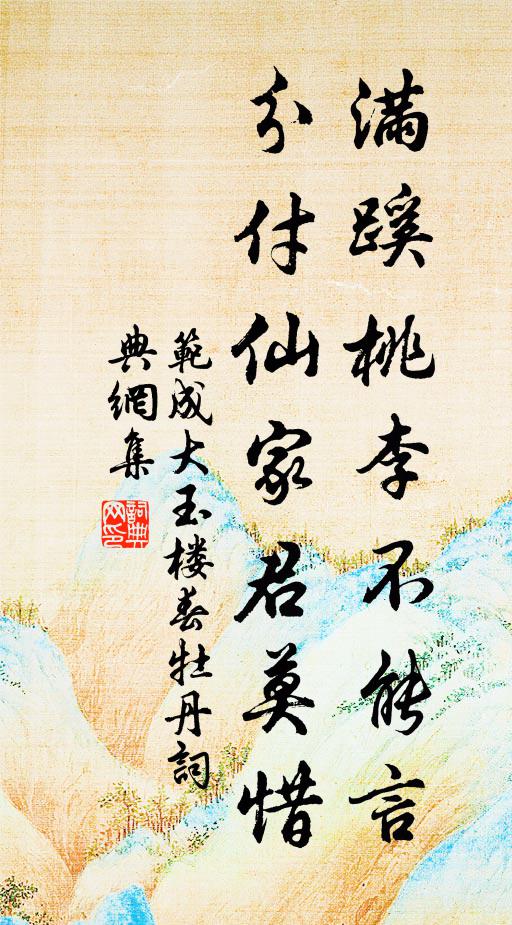 满蹊桃李不能言
分付仙家君莫惜
範成大玉楼春牡丹詞
典網集
詞典
网印